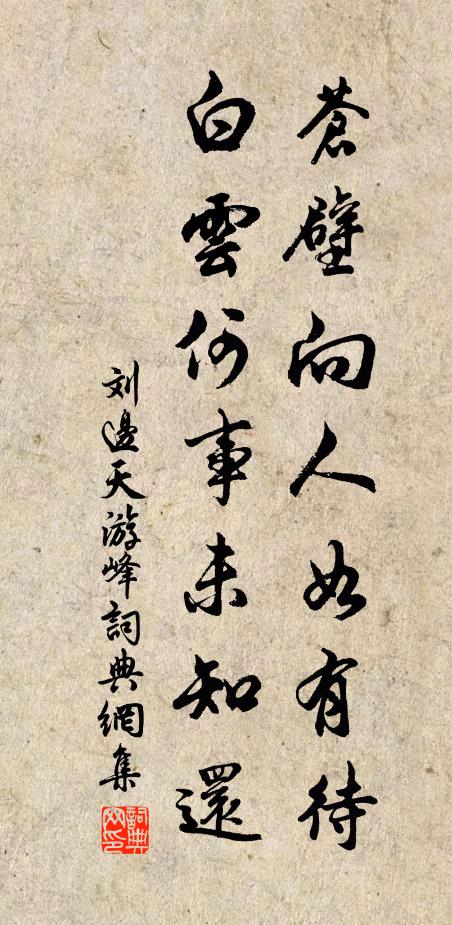 蒼壁向人如有待
白雲何事未知還
刘邊天游峰詞典網集
詞典网印